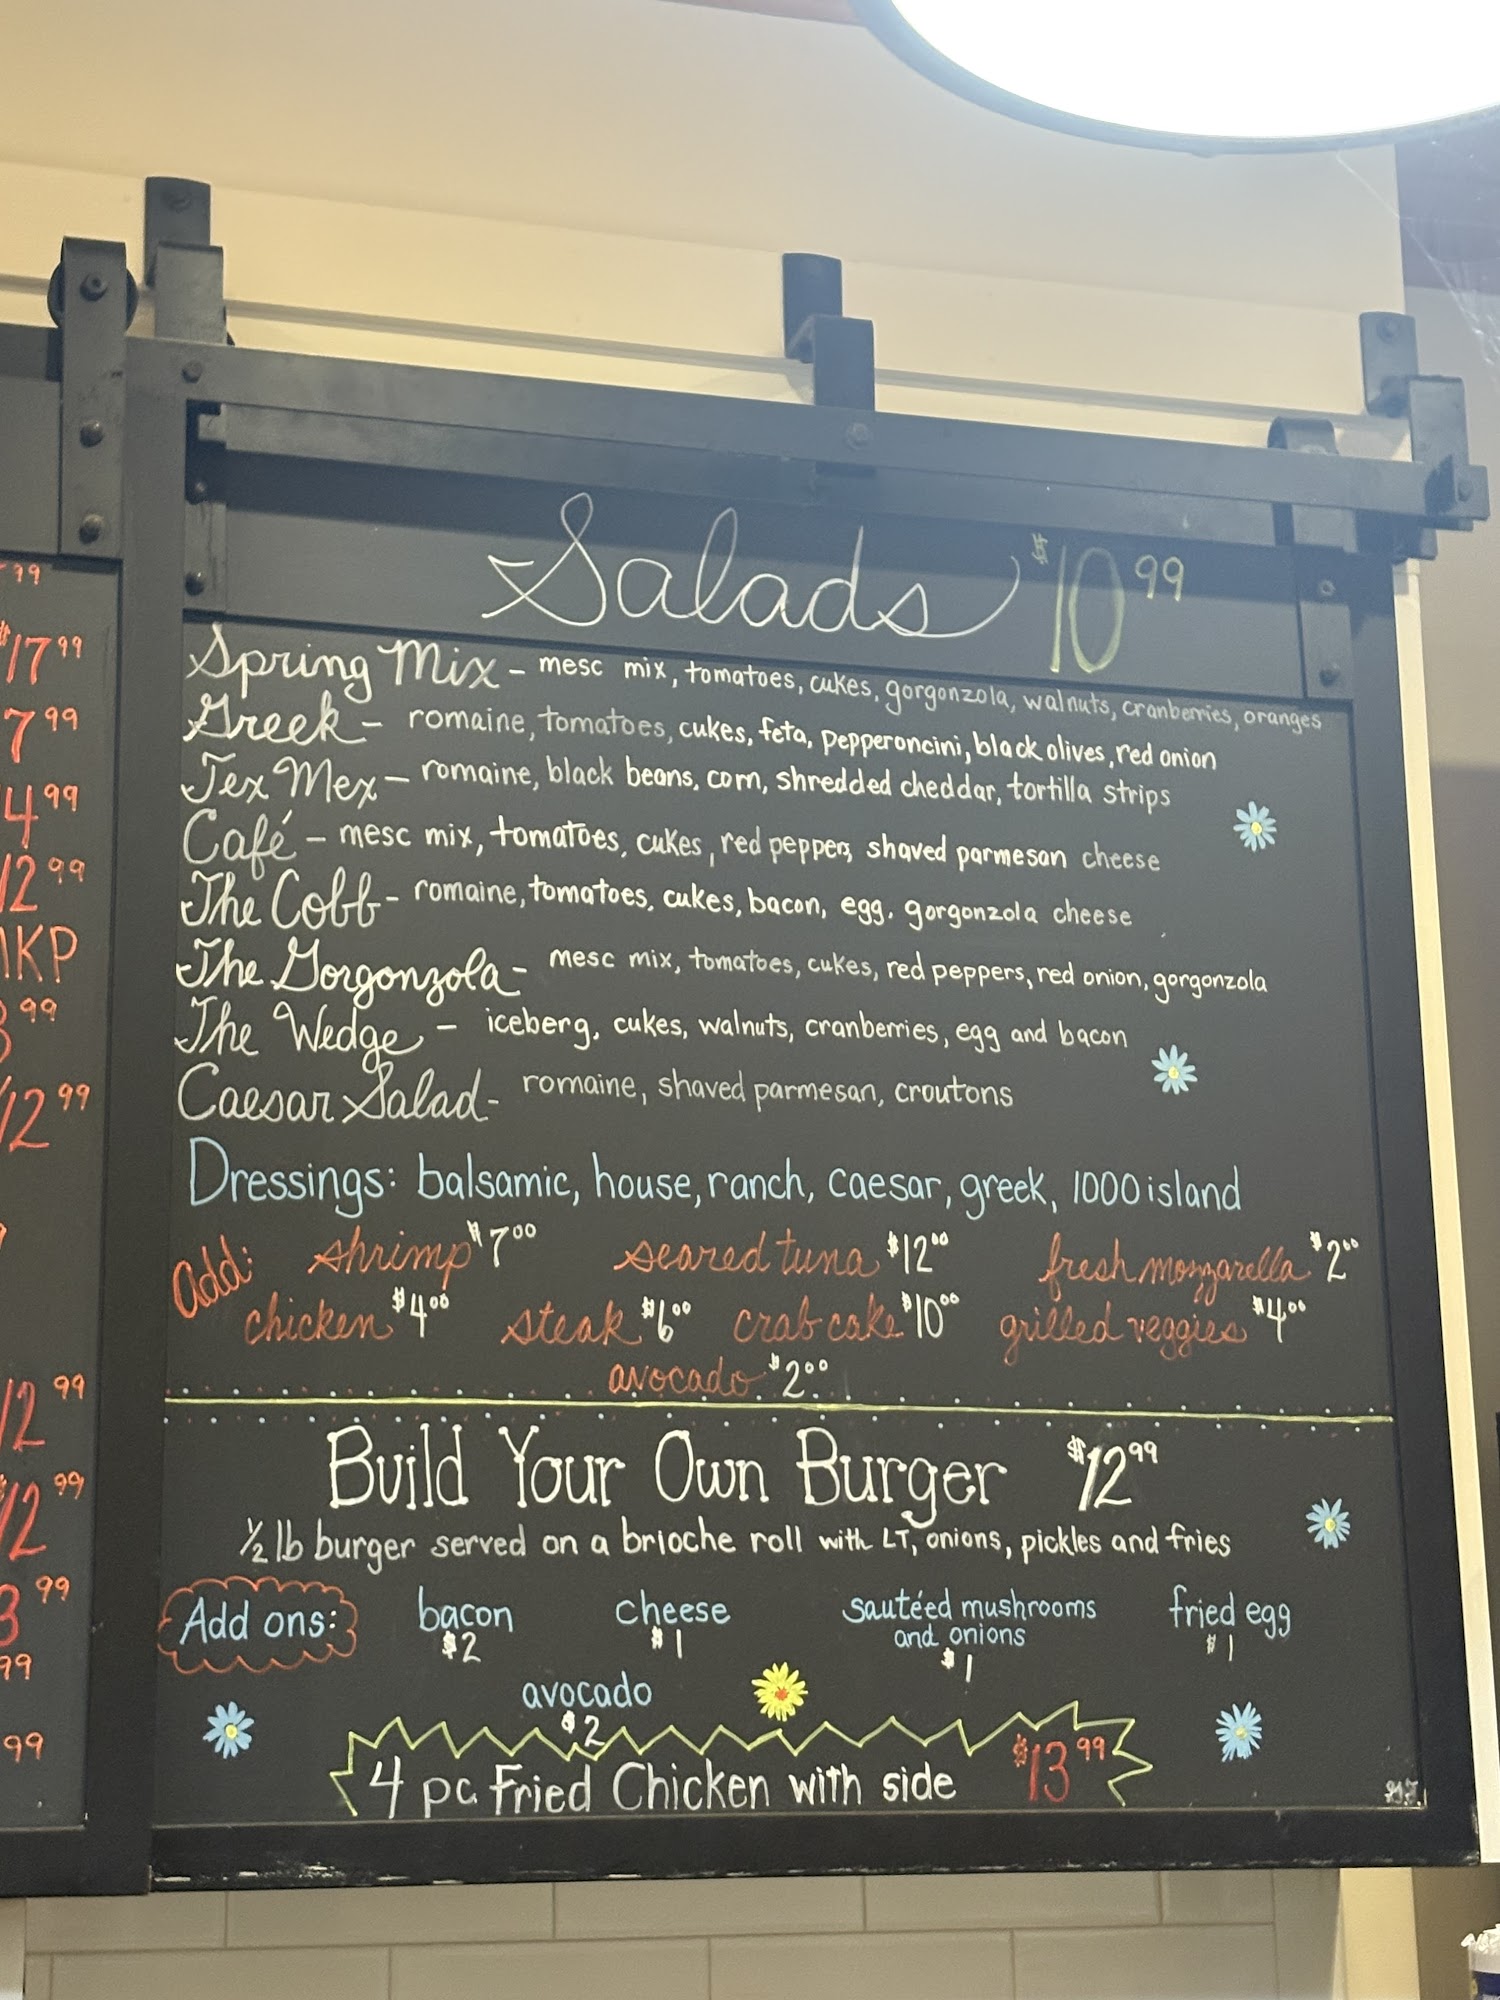 Salads $10.99
Spring Mix - mesc mix, tomatoes, cukes, gorgonzola, walnuts, cranberries, oranges
Greek - romaine, tomatoes, cukes, feta, pepperoncini, black olives, red onion
Tex Mex - romaine, black beans, corn, shredded cheddar, tortilla strips
Café - mesc mix, tomatoes, cukes, red peppers, shaved parmesan cheese
The Cobb - romaine, tomatoes, cukes, bacon, egg, gorgonzola cheese
The Gorgonzola - mesc mix, tomatoes, cukes, red peppers, red onion, gorgonzola
The Wedge - iceberg, cukes, walnuts, cranberries, egg and bacon
Caesar Salad - romaine, shaved parmesan, croutons
Dressings: balsamic, house, ranch, caesar, greek, 1000 island
Add: shrimp $7.00 seared tuna $12.00 fresh mozzarella $2.00
chicken $4.00 steak $6.00 crab cake $10.00 grilled veggies $4.00
avocado $2.00
Build Your Own Burger $12.99
1/2 lb burger served on a brioche roll with LT, onions, pickles and fries
Add ons: bacon $2 cheese $1 sautéed mushrooms and onions $1 fried egg $1
avocado $2
4 pc Fried Chicken with side $13.99
$17.99
7.99
4.99
12.99
MKP
12.99
12.99
$12.99